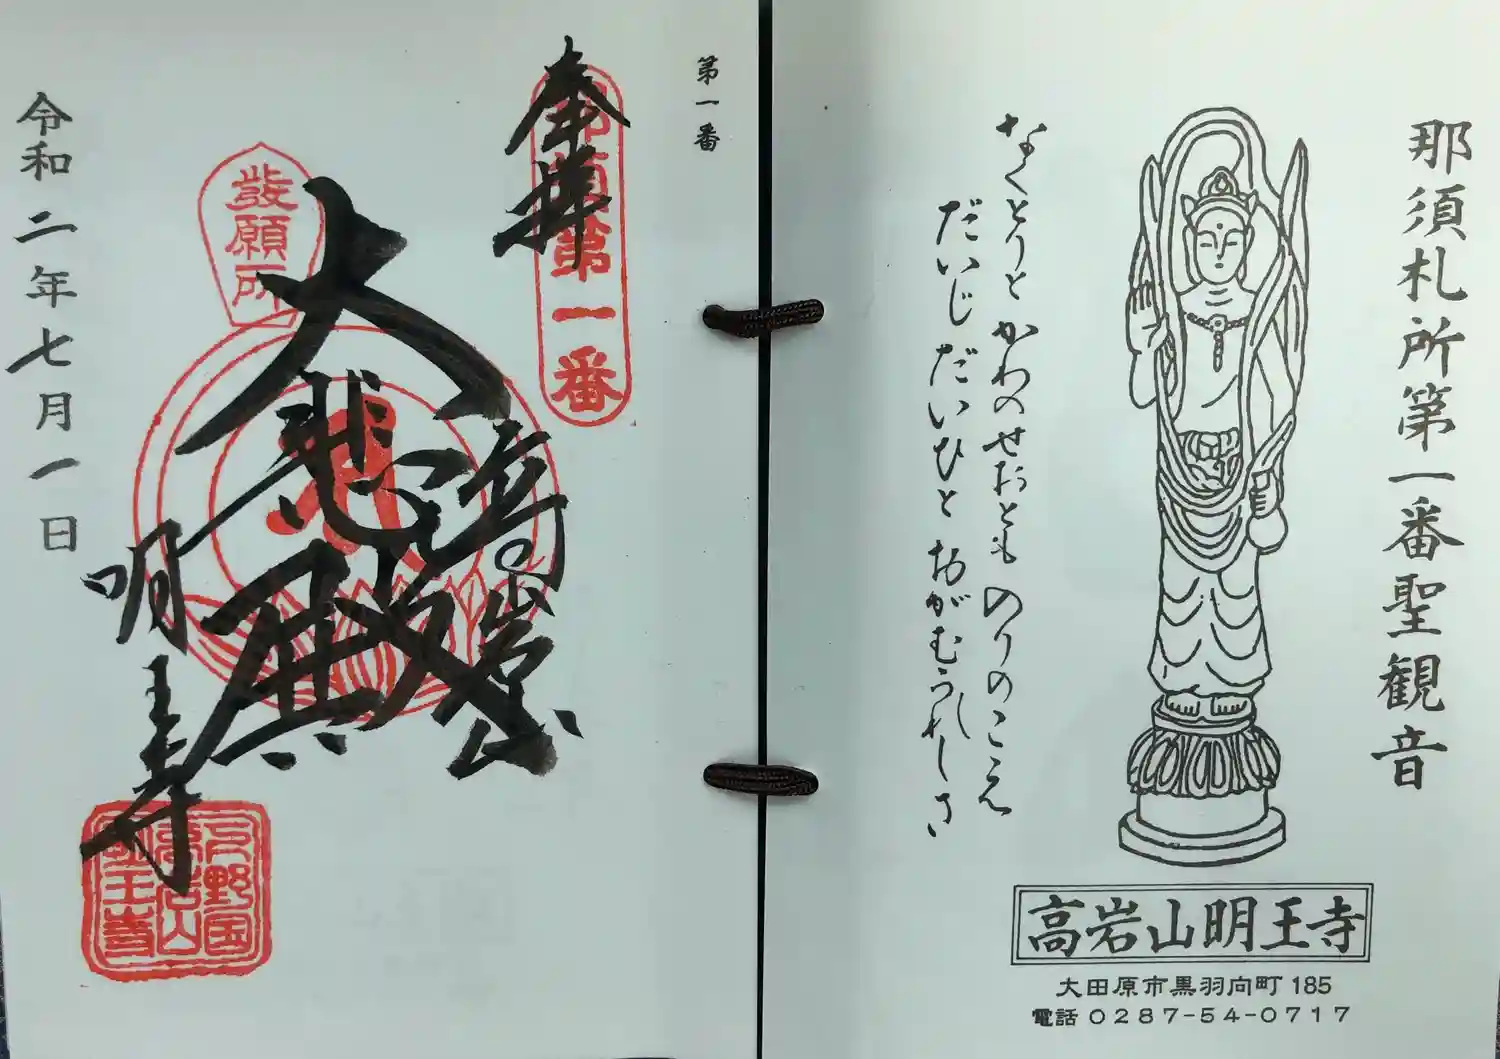 那須札所第一番聖観音
なくとりと かわのせおとも のりのこえ
だいじだいひと おがむうれしさ
高岩山明王寺
大田原市黒羽向町185
電話 0287-54-0717
第一番
奉拝
那須第一番
高岩山
大悲殿
發願所
明王寺
下野国
高岩山
明王寺
令和二年七月一日